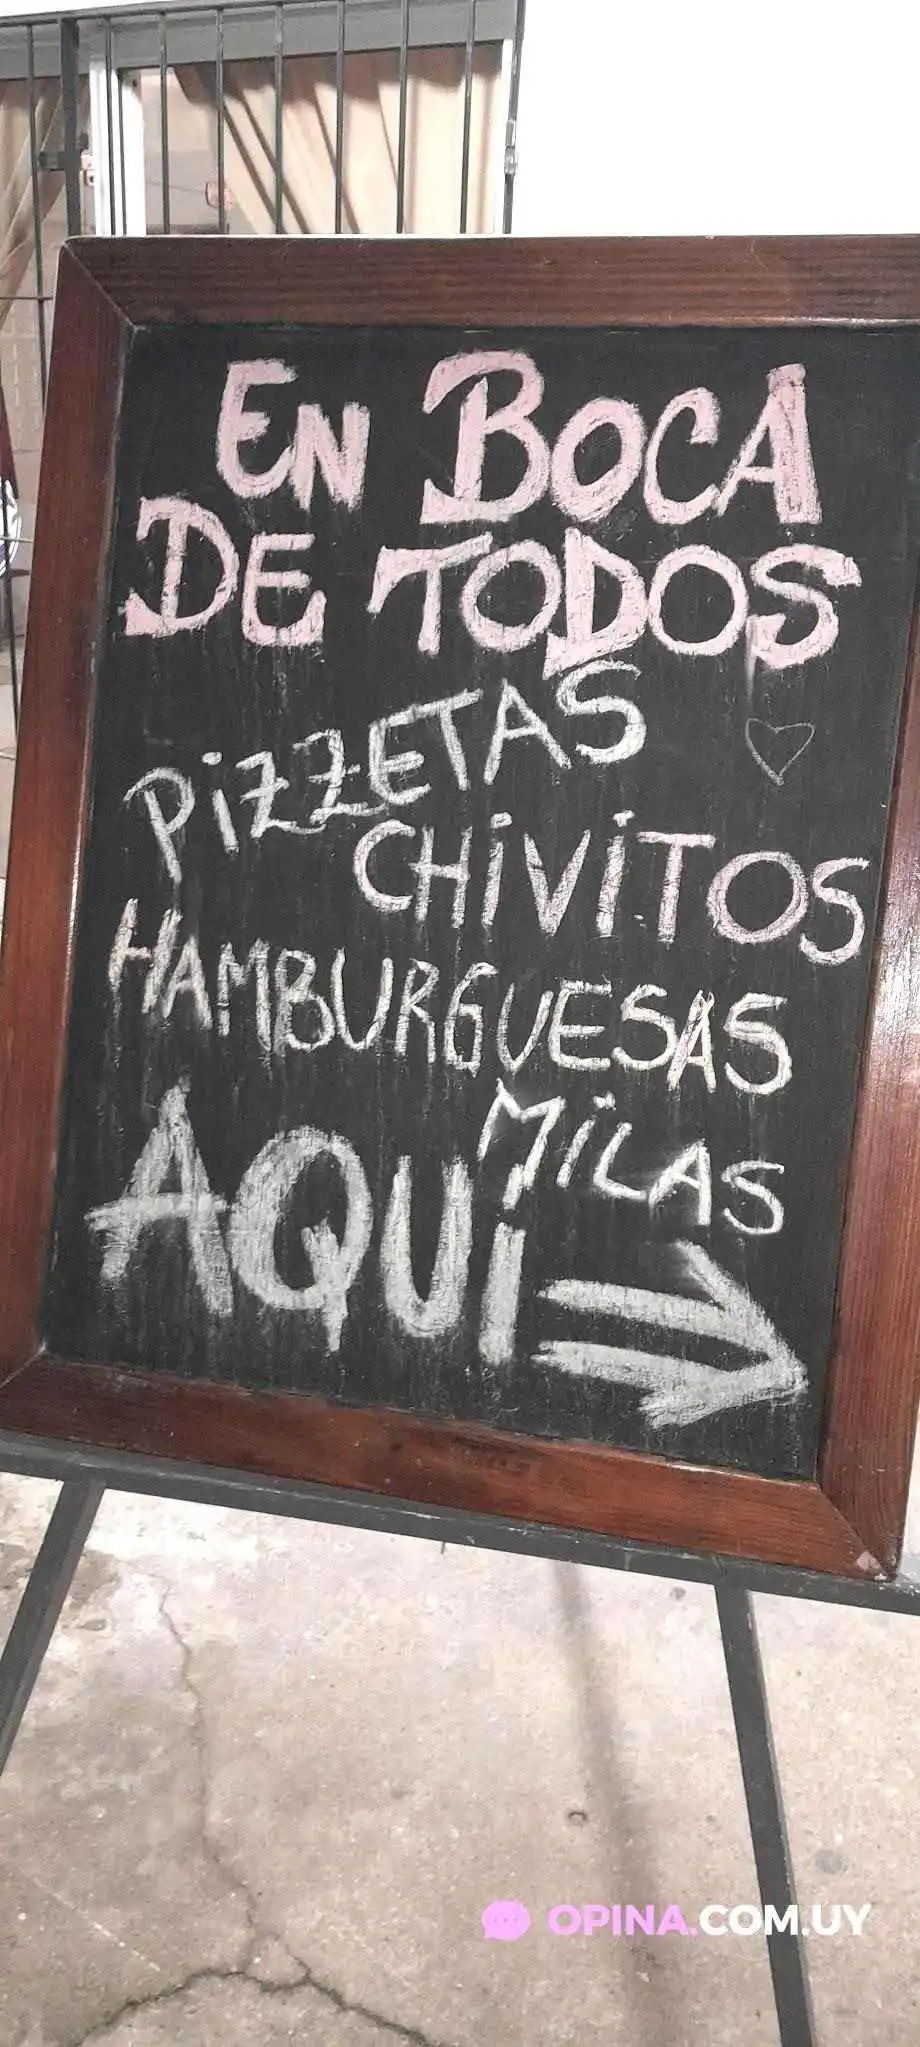 EN BOCA
DE TODOS
PiZZETAS
CHiViTOS
HAMBURGUESAS
MiLAS
AQUi
OPINA.COM.UY